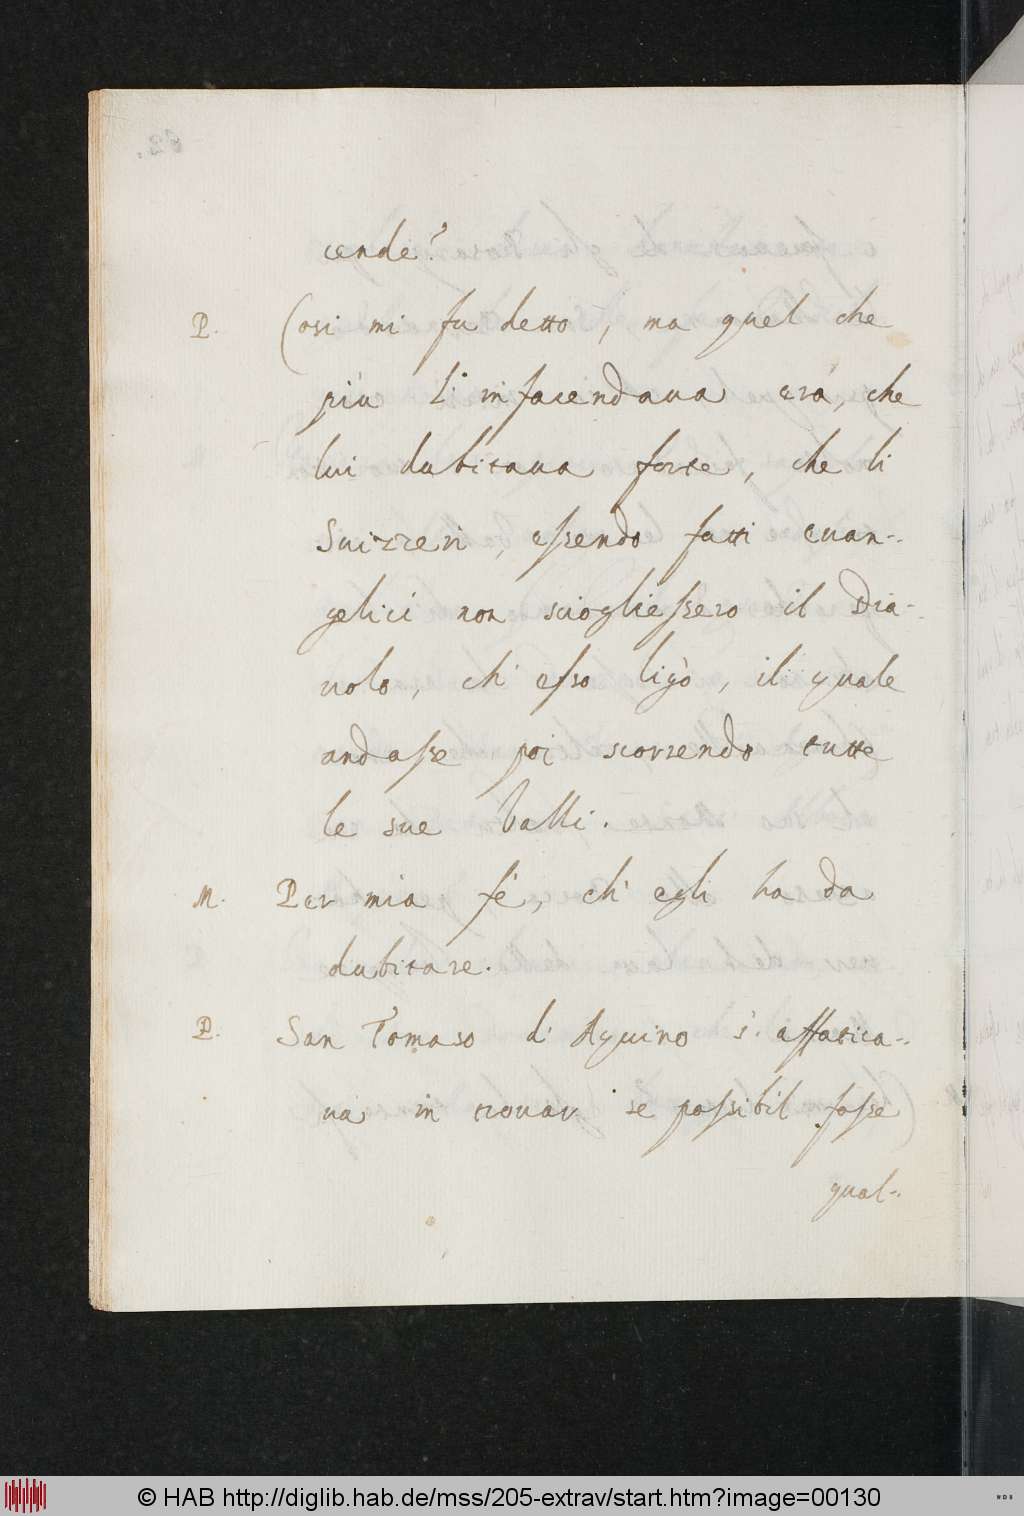 cende?
P. Cosi mi fu detto, ma quel che
più l'infacendaua era, che
lui dubitaua forte, che li
Suizzeri, essendo fatti euan-
gelici non sciogliessero il Dia-
uolo, ch' esso ligò, il quale
andasse poi scorrendo tutte
le sue Valli.
M. Per mia fé, ch' egli ha da
dubitare.
P. San Tomaso di Aquino s' affatica-
ua in trouar se possibil fosse
qual-
© HAB http://diglib.hab.de/mss/205-extrav/start.htm?image=00130